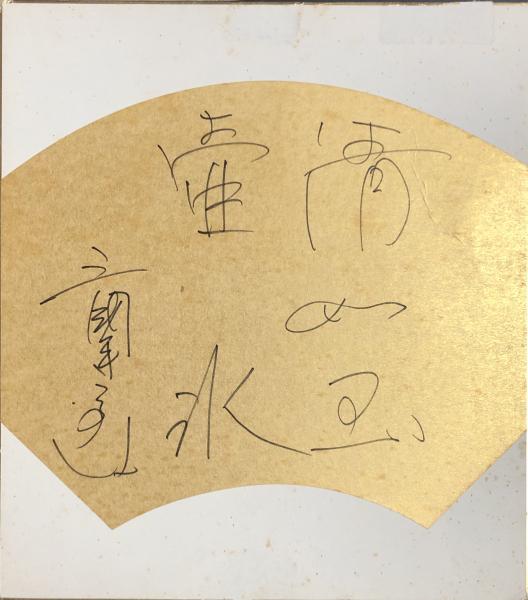 清如玉
壺氷